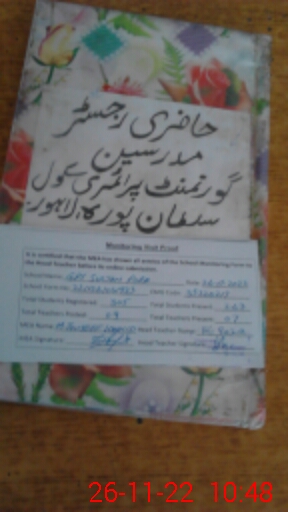 حاضری رجسٹر
مدرسین
گورنمنٹ پرائمری سکول
سلطان پورہ لاہور
Monitoring Visit Proof
It is certified that the MEA has shown all entries of the School Monitoring Form to
the Head Teacher before its online submission.
School Name: GPS Sultan Pura Date
School Form No: EMIS Code:
Total Students Registered: Total Students Present:
Total Teachers Posted: 09 Total Teachers Present: 07
MEA Name: M. Head Teacher Name:
MEA Signature: Head Teacher Signature:
26-11-22 10:48